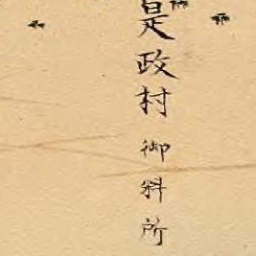 是政村御料所